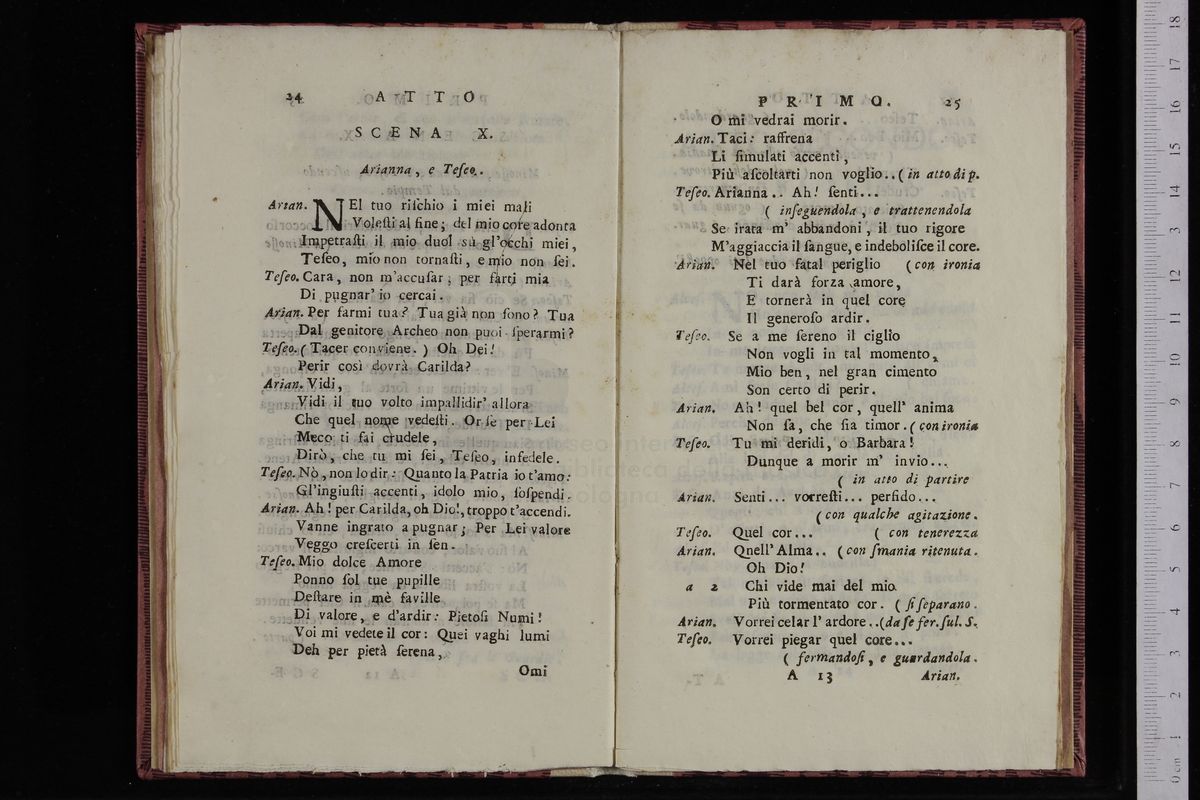 24 ATTO
SCENA X.
Arianna, e Teſeo.
Arian. NEl tuo riſchio i miei mali
Voleſti al fine; del mio core ad onta
Impetraſti il mio duol sù gl'occhi miei,
Teſeo, mio non tornaſti, e mio non ſei.
Teſeo. Cara, non m'accuſar; per farti mia
Di pugnar' io cercai.
Arian. Per farmi tua? Tua già non ſono? Tua
Dal genitore Archeo non puoi ſperarmi?
Teſeo. (Tacer conviene.) Oh Dei!
Perir così dovrà Carilda?
Arian. Vidi,
Vidi il tuo volto impallidir' allora
Che quel nome vedeſti. Or ſe per Lei
Meco ti fai crudele,
Dirò, che tu mi ſei, Teſeo, infedele.
Teſeo. Nò, non lo dir: Quanto la Patria io t'amo:
Gl'ingiuſti accenti, idolo mio, ſoſpendi.
Arian. Ah! per Carilda, oh Dio!, troppo t'accendi.
Vanne ingrato a pugnar; Per Lei valore
Veggo creſcerti in ſen.
Teſeo. Mio dolce Amore
Ponno ſol tue pupille
Deſtare in mè faville
Di valore, e d'ardir: Pietoſi Numi!
Voi mi vedete il cor: Quei vaghi lumi
Deh per pietà ſerena,
Omi
PRIMO. 25
O mi vedrai morir.
Arian. Taci: raffrena
Li ſimulati accenti,
Più aſcoltarti non voglio..(in atto di p.
Teſeo. Arianna.. Ah! ſenti...
( inſeguendola, e trattenendola
Se irata m' abbandoni, il tuo rigore
M'aggiaccia il ſangue, e indeboliſce il core.
Arian. Nel tuo fatal periglio (con ironia
Ti darà forza amore,
E tornerà in quel core
Il generoſo ardir.
Teſeo. Se a me ſereno il ciglio
Non vogli in tal momento,
Mio ben, nel gran cimento
Son certo di perir.
Arian. Ah! quel bel cor, quell' anima
Non ſa, che ſia timor. (con ironia
Teſeo. Tu mi deridi, o Barbara!
Dunque a morir m' invio...
( in atto di partire
Arian. Senti... vorreſti... perfido...
(con qualche agitazione.
Teſeo. Quel cor... ( con tenerezza
Arian. Qnell' Alma.. (con ſmania ritenuta.
Oh Dio!
a 2 Chi vide mai del mio
Più tormentato cor. ( ſi ſeparano.
Arian. Vorrei celar l' ardore..(da ſe fer. ſul. S.
Teſeo. Vorrei piegar quel core...
( fermandoſi, e guardandola.
A 13 Arian.